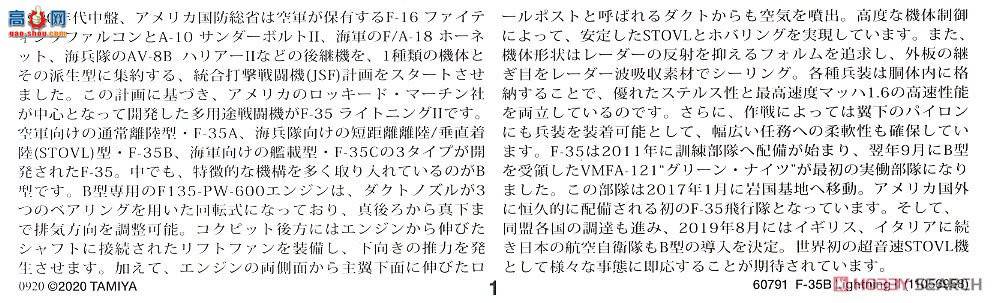 年代中盤、アメリカ国防総省は空軍が保有するF-16 ファイテ
ィングファルコンとA-10 サンダーボルトII、海軍のF/A-18 ホーネ
ット、海兵隊のAV-8B ハリアーIIなどの後継機を、1種類の機体と
その派生型に集約する、統合打撃戦闘機(JSF)計画をスタートさせ
ました。この計画に基づき、アメリカのロッキード・マーチン社
が中心となって開発した多用途戦闘機がF-35 ライトニングIIです。
空軍向けの通常離陸型・F-35A、海兵隊向けの短距離離陸/垂直着
陸(STOVL)型・F-35B、海軍向けの艦載型・F-35Cの3タイプが開
発されたF-35。中でも、特徴的な機構を多く取り入れているのがB
型です。B型専用のF135-PW-600エンジンは、ダクトノズルが3
つのベアリングを用いた回転式になっており、真後ろから真下ま
で排気方向を調整可能。コクピット後方にはエンジンから伸びた
シャフトに接続されたリフトファンを装備し、下向きの推力を発
生させます。加えて、エンジンの両側面から主翼下面に伸びたロ
ールポストと呼ばれるダクトからも空気を噴出。高度な機体制御
によって、安定したSTOVLとホバリングを実現しています。また、
機体形状はレーダーの反射を抑えるフォルムを追求し、外板の継
ぎ目をレーダー波吸収素材でシーリング。各種兵装は胴体内に格
納することで、優れたステルス性と最高速度マッハ1.6の高速性能
を両立しているのです。さらに、作戦によっては翼下のパイロン
にも兵装を装着可能として、幅広い任務への柔軟性も確保してい
ます。F-35は2011年に訓練部隊へ配備が始まり、翌年9月にB型
を受領したVMFA-121“グリーン・ナイツ”が最初の実働部隊になり
ました。この部隊は2017年1月に岩国基地へ移動。アメリカ国外
に恒久的に配備される初のF-35飛行隊となっています。そして、
同盟各国の調達も進み、2019年8月にはイギリス、イタリアに続
き日本の航空自衛隊もB型の導入を決定。世界初の超音速STOVL機
として様々な事態に即応することが期待されています。
0920 ©2020 TAMIYA
1
60791 F-35B Lightning II (11056993)
HOBBY SEARCH